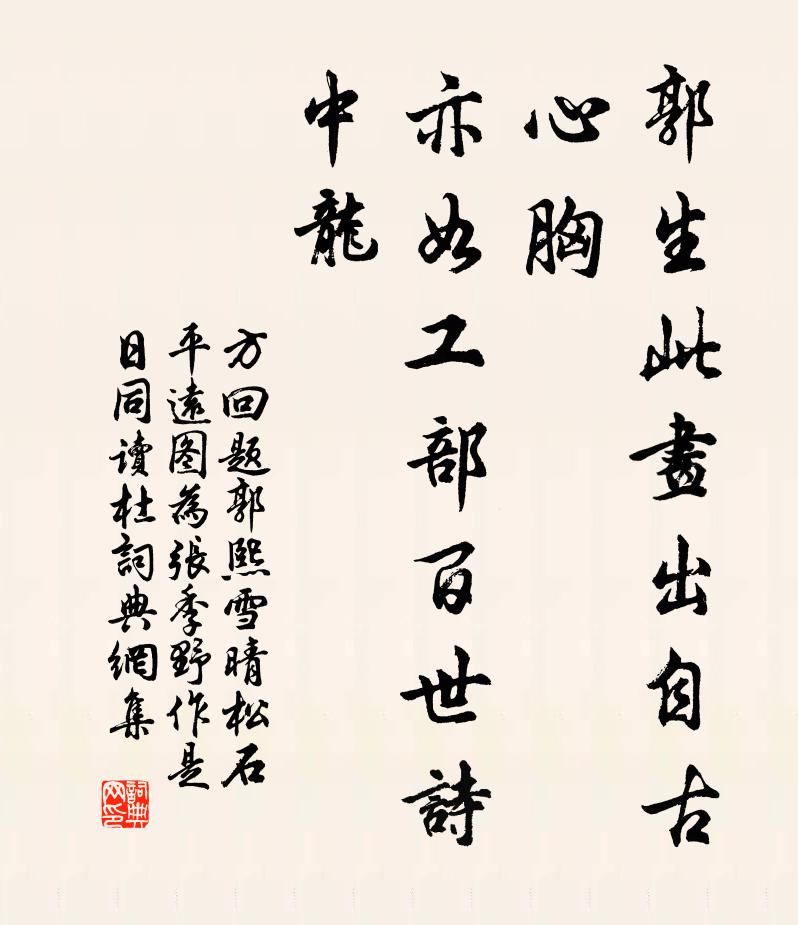 郭生此畫出自古
心胸
亦如工部百世詩
中龍
方回题郭熙雪晴松石
平遠图為張季野作是
日同讀杜詞典網集
詞典网印